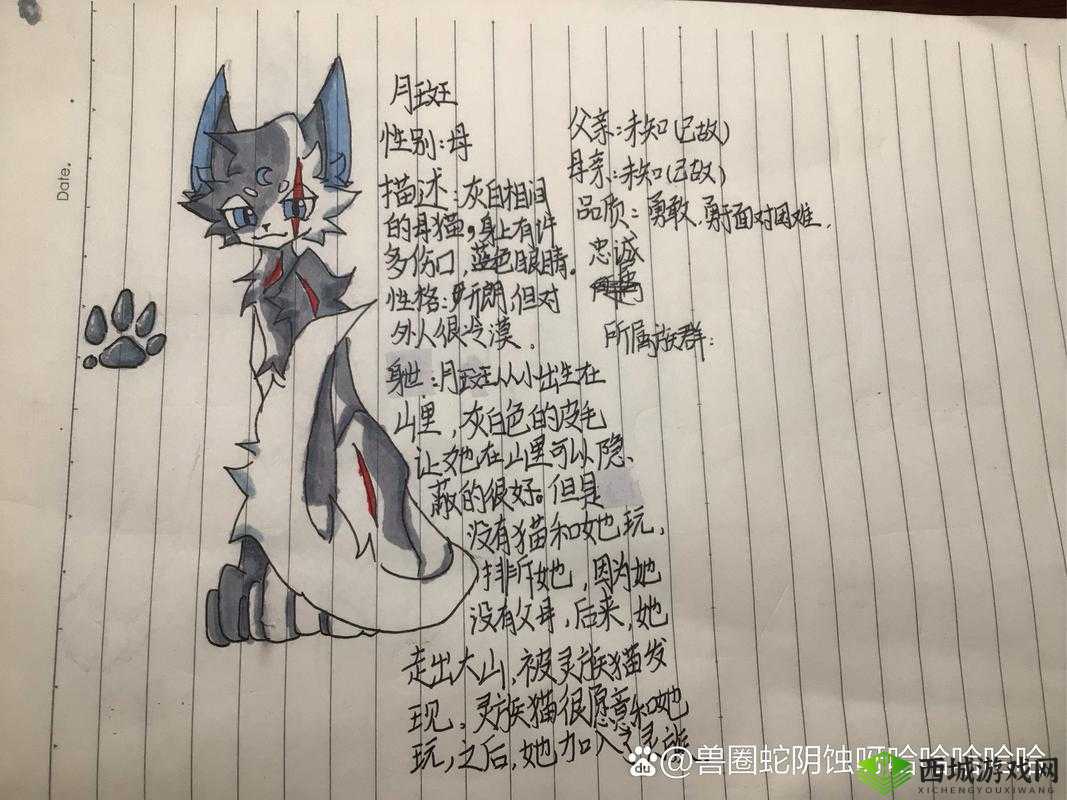 Date.
月斑
性别:母
描述:灰白相间
的母猫,身上有许
多伤口,蓝色眼睛。
性格:开朗,但对
外人很冷漠.
身世:月斑从小出生在
山里,灰白色的皮毛
让她在山里可以隐
蔽的很好。但是
没有猫和她玩,
排斥她,因为她
没有父母,后来,她
走出大山,被灵族猫发
现,灵族猫很愿意和她
玩,之后,她加入灵族
父亲:未知(已故)
母亲:未知(已故)
品质:勇敢.勇于面对困难.
忠诚
所属族群:
@兽圈蛇阴蚀呵哈哈哈哈哈
西城游戏网
XICHENGYOUXIWANG